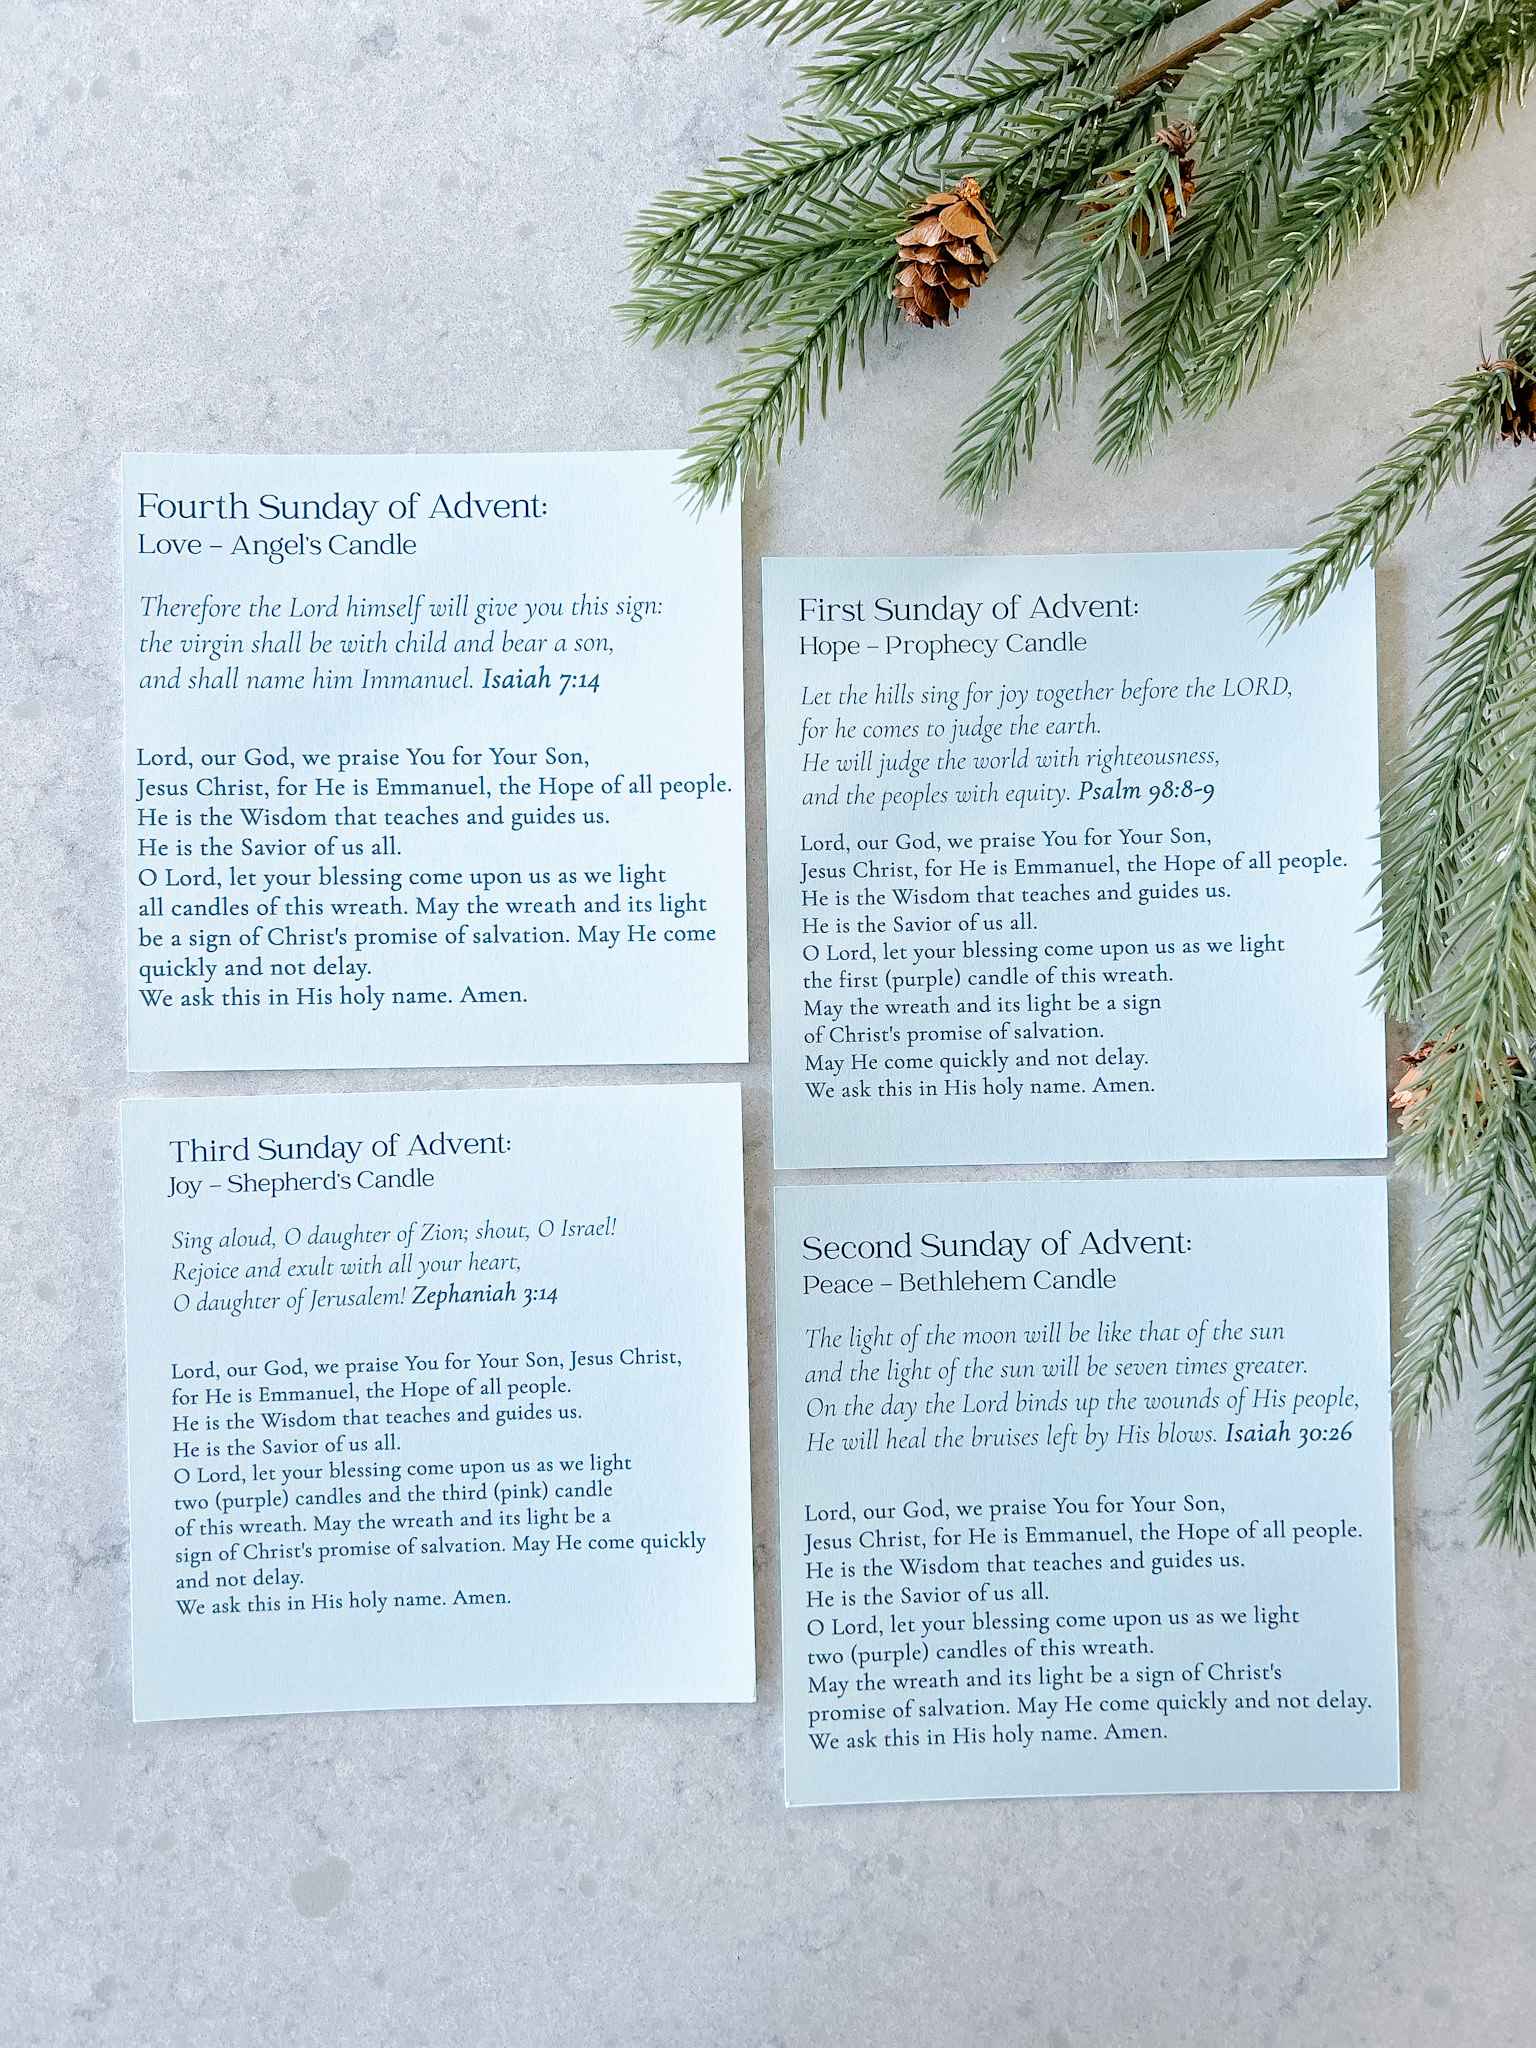 Fourth Sunday of Advent:
Love – Angel's Candle
Therefore the Lord himself will give you this sign:
the virgin shall be with child and bear a son,
and shall name him Immanuel. Isaiah 7:14
Lord, our God, we praise You for Your Son,
Jesus Christ, for He is Emmanuel, the Hope of all people.
He is the Wisdom that teaches and guides us.
He is the Savior of us all.
O Lord, let your blessing come upon us as we light
all candles of this wreath. May the wreath and its light
be a sign of Christ's promise of salvation. May He come
quickly and not delay.
We ask this in His holy name. Amen.
First Sunday of Advent:
Hope – Prophecy Candle
Let the hills sing for joy together before the LORD,
for he comes to judge the earth.
He will judge the world with righteousness,
and the peoples with equity. Psalm 98:8-9
Lord, our God, we praise You for Your Son,
Jesus Christ, for He is Emmanuel, the Hope of all people.
He is the Wisdom that teaches and guides us.
He is the Savior of us all.
O Lord, let your blessing come upon us as we light
the first (purple) candle of this wreath.
May the wreath and its light be a sign
of Christ's promise of salvation.
May He come quickly and not delay.
We ask this in His holy name. Amen.
Third Sunday of Advent:
Joy – Shepherd's Candle
Sing aloud, O daughter of Zion; shout, O Israel!
Rejoice and exult with all your heart,
O daughter of Jerusalem! Zephaniah 3:14
Lord, our God, we praise You for Your Son, Jesus Christ,
for He is Emmanuel, the Hope of all people.
He is the Wisdom that teaches and guides us.
He is the Savior of us all.
O Lord, let your blessing come upon us as we light
two (purple) candles and the third (pink) candle
of this wreath. May the wreath and its light be a
sign of Christ's promise of salvation. May He come quickly
and not delay.
We ask this in His holy name. Amen.
Second Sunday of Advent:
Peace – Bethlehem Candle
The light of the moon will be like that of the sun
and the light of the sun will be seven times greater.
On the day the Lord binds up the wounds of His people,
He will heal the bruises left by His blows. Isaiah 30:26
Lord, our God, we praise You for Your Son,
Jesus Christ, for He is Emmanuel, the Hope of all people.
He is the Wisdom that teaches and guides us.
He is the Savior of us all.
O Lord, let your blessing come upon us as we light
two (purple) candles of this wreath.
May the wreath and its light be a sign of Christ's
promise of salvation. May He come quickly and not delay.
We ask this in His holy name. Amen.